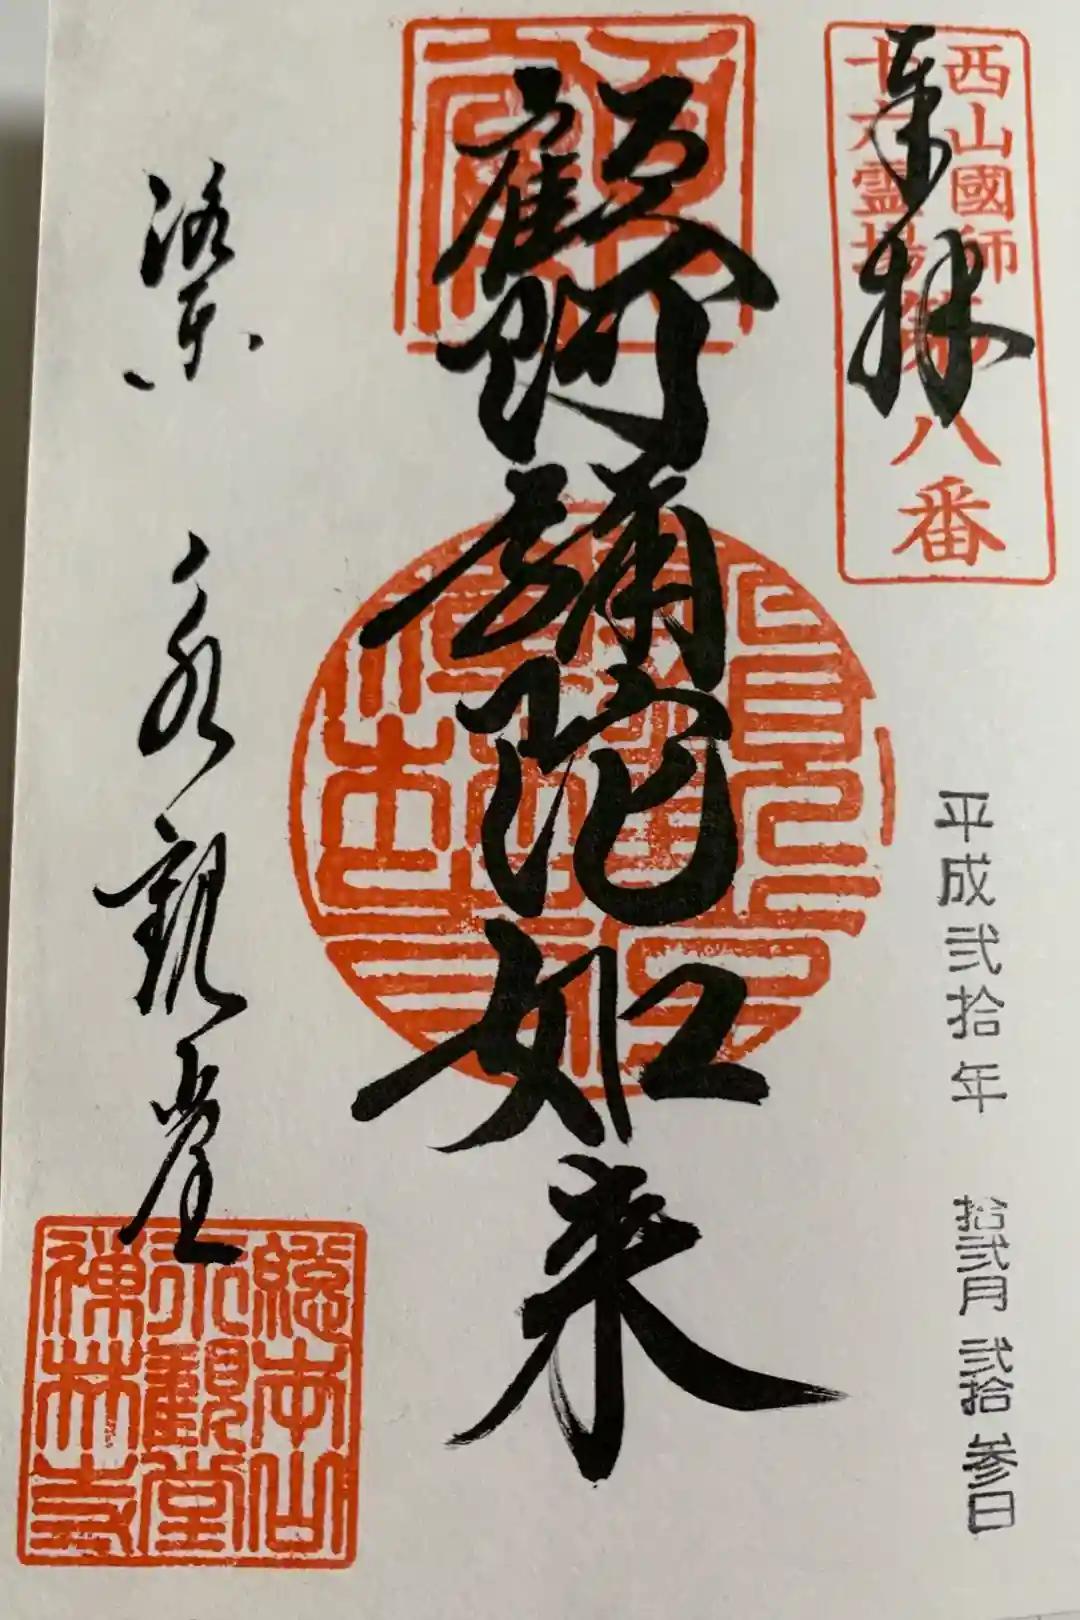 奉拝
西山國師
十六霊場
第八番
平成弐拾年 拾弐月 弐拾参日
顧阿彌陀如来
洛東 永観堂
総本山
永観堂
禅林寺